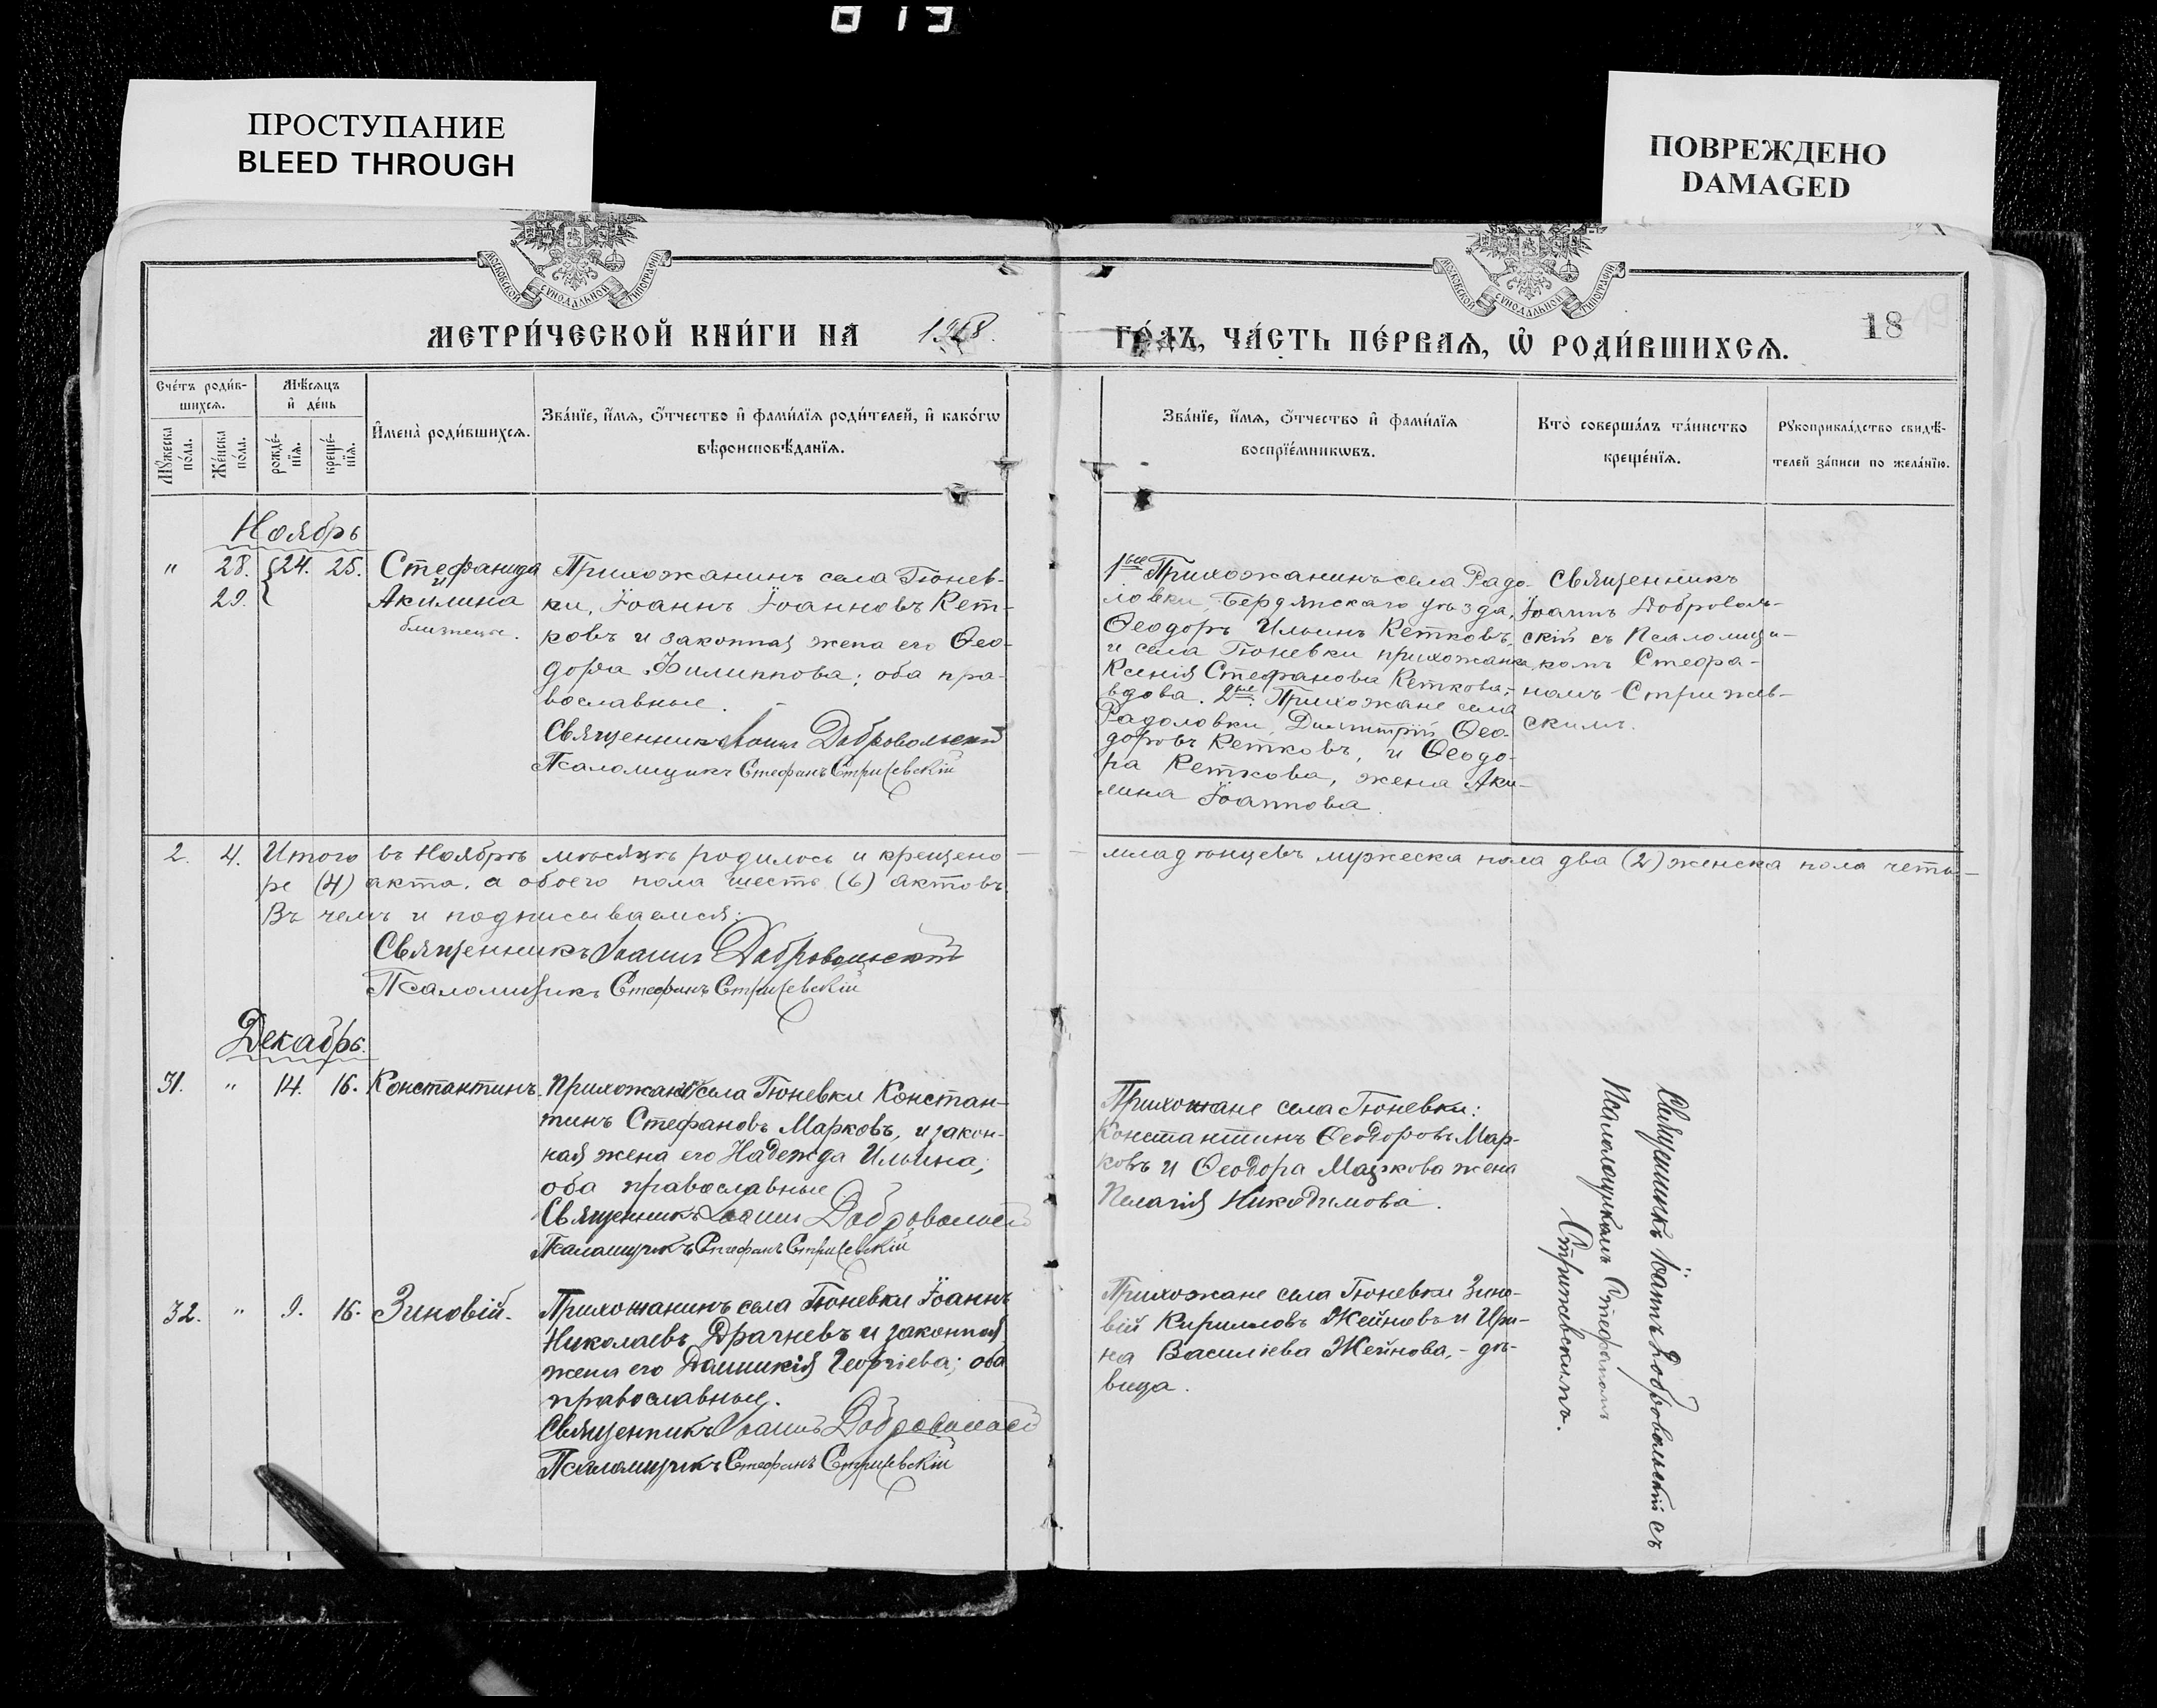 ПРОСТУПАНИЕ
BLEED THROUGH
ПОВРЕЖДЕНО
DAMAGED
МОСКОВСКОЙ СѴНОДАЛЬНОЙ ТИПОГРАФІИ
МОСКОВСКОЙ СѴНОДАЛЬНОЙ ТИПОГРАФІИ
МЕТРИ́ЧЕСКОЙ КНИ́ГИ НА
ГО́ДЪ, ЧА́СТЬ ПЕ́РВАѦ, Ѡ҆ РОДИ́ВШИХСѦ.
18
Сче́тъ роди́в-
шихсѧ.
Мꙋ́жеска по́ла.
Же́нска по́ла.
Мѣ́сѧцъ
и҆ де́нь
рожде́-
нїѧ.
креще́-
нїѧ.
И҆мена̀ роди́вшихсѧ.
Зва́нїе, и҆́мѧ, ѻ҆́тчество и҆ фами́лїѧ роди́телей, и҆ како́гѡ
вѣроисповѣ́данїѧ.
Зва́нїе, и҆́мѧ, ѻ҆́тчество и҆ фами́лїѧ
воспрїе́мникѡвъ.
Кто̀ соверша́лъ та́инство
креще́нїѧ.
Рꙋкоприкла́дство свидѣ́-
телей за́писи по жела́нїю.
Ноябрь
" 28. 24. 25. Стефанида
29. и Акилина
близнецы.
Прихожанинъ села Гюнев-
ки, Іоаннъ Іоанновъ Кет-
ковъ и законная жена его Ѳео-
дора Филиппова; оба пра-
вославные.
Священникъ Іоаннъ Добровольскій
Псаломщикъ Стефанъ Стрижевскій
1ые Прихожанинъ села Радо-
ловки, Бердянскаго уѣзда,
Ѳеодоръ Ильинъ Кетковъ,
и села Гюневки прихожанка
Ксенія Стефанова Кеткова,-
вдова. 2ые: Прихожане села
Радоловки, Димитрій Ѳео-
доровъ Кетковъ, и Ѳеодо-
ра Кеткова, жена Аки-
лина Іоаннова.
Священникъ
Іоаннъ Доброволь-
скій съ Псаломщи-
комъ Стефа-
номъ Стрижев-
скимъ.
2. 4. Итого въ Ноябрѣ мѣсяцѣ родилось и крещено
младенцевъ мужеска пола два (2) женска пола четы-
ре (4) акта, а обоего пола шесть (6) актовъ.
Въ чемъ и подписываемся:
Священникъ Іоаннъ Добровольскій
Псаломщикъ Стефанъ Стрижевскій
Декабрь.
31. " 14. 16. Константинъ.
Прихожане села Гюневки Констан-
тинъ Стефановъ Марковъ, и закон-
ная жена его Надежда Ильина;
оба православные.
Священникъ Іоаннъ Добровольскій
Псаломщикъ Стефанъ Стрижевскій
Прихожане села Гюневки:
Константинъ Ѳеодоровъ Мар-
ковъ и Ѳеодора Маркова жена
Пелагія Никодимова.
Священникъ Іоаннъ Добровольскій съ
Псаломщикомъ Стефаномъ
Стрижевскимъ.
32. " 9. 16. Зиновій.
Прихожанинъ села Гюневки Іоаннъ
Николаевъ Драгневъ и законная
жена его Домникія Георгіева; оба
православные.
Священникъ Іоаннъ Добровольскій
Псаломщикъ Стефанъ Стрижевскій
Прихожане села Гюневки Зино-
вій Кирилловъ Жейновъ и Ири-
на Василіева Жейнова,- дѣ-
вица.